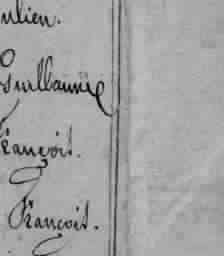 ulien.
Guillaume
François.
François.